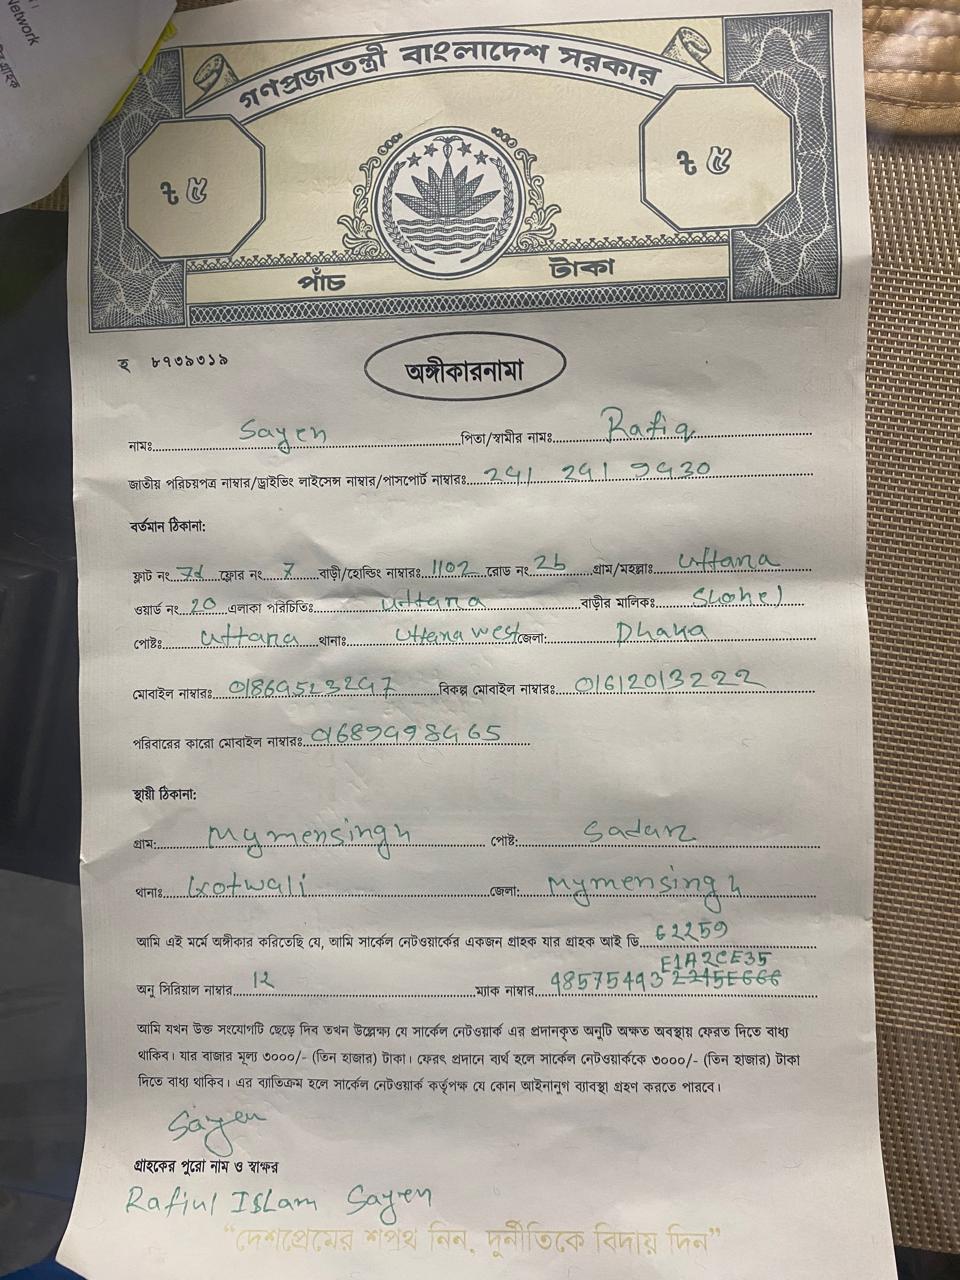 Network
গণপ্রজাতন্ত্রী বাংলাদেশ সরকার
৳ ৫ ৳ ৫
পাঁচ টাকা
হ ৮৭৩৯৩১৯
অঙ্গীকারনামা
নামঃ Sayen পিতা/স্বামীর নামঃ Rafiq
জাতীয় পরিচয়পত্র নাম্বার/ড্রাইভিং লাইসেন্স নাম্বার/পাসপোর্ট নাম্বারঃ 241 241 9430
বর্তমান ঠিকানা:
ফ্লাট নং 7d ফ্লোর নং 7 বাড়ী/হোল্ডিং নাম্বারঃ 1102 রোড নং 2b গ্রাম/মহল্লাঃ Uttara
ওয়ার্ড নং 20 এলাকা পরিচিতিঃ Uttara বাড়ীর মালিকঃ Shohel
পোষ্টঃ Uttara থানাঃ Uttara west জেলা: Dhaka
মোবাইল নাম্বারঃ 01869523297 বিকল্প মোবাইল নাম্বারঃ 01612013222
পরিবারের কারো মোবাইল নাম্বারঃ
স্থায়ী ঠিকানা:
গ্রাম: Mymensingh পোষ্ট: Sadar
থানাঃ Kotwali জেলা: Mymensingh
আমি এই মর্মে অঙ্গীকার করিতেছি যে, আমি সার্কেল নেটওয়ার্কের একজন গ্রাহক যার গ্রাহক আই ডি 62259
E1A2CE35
অনু সিরিয়াল নাম্বার 12 ম্যাক নাম্বার 48575443
আমি যখন উক্ত সংযোগটি ছেড়ে দিব তখন উল্লেক্ষ্য যে সার্কেল নেটওয়ার্ক এর প্রদানকৃত অনুটি অক্ষত অবস্থায় ফেরত দিতে বাধ্য
থাকিব। যার বাজার মূল্য ৩০০০/- (তিন হাজার) টাকা। ফেরৎ প্রদানে ব্যর্থ হলে সার্কেল নেটওয়ার্ককে ৩০০০/- (তিন হাজার) টাকা
দিতে বাধ্য থাকিব। এর ব্যাতিক্রম হলে সার্কেল নেটওয়ার্ক কর্তৃপক্ষ যে কোন আইনানুগ ব্যাবস্থা গ্রহণ করতে পারবে।
Sayen
গ্রাহকের পুরো নাম ও স্বাক্ষর
Rafiul Islam Sayen
“দেশপ্রেমের শপথ নিন, দুর্নীতিকে বিদায় দিন”